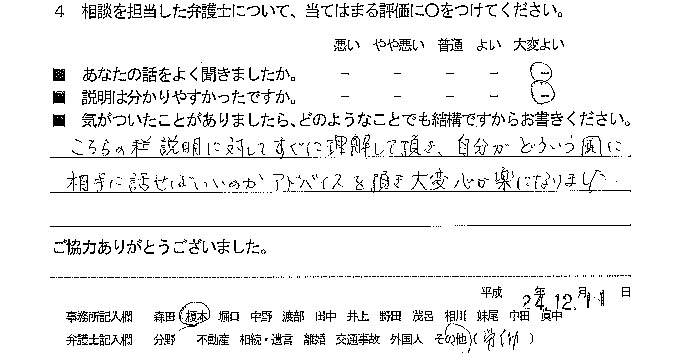 4 相談を担当した弁護士について、当てはまる評価に○をつけてください。
悪い やや悪い 普通 よい 大変よい
■ あなたの話をよく聞きましたか。 － － － － －
■ 説明は分かりやすかったですか。 － － － － －
■ 気がついたことがありましたら、どのようなことでも結構ですからお書きください。
こちらの 説明に対してすぐに理解して頂き、自分がどういう風に
相手に話せばいいのかアドバイスを頂き大変心が楽になりました
ご協力ありがとうございました。
平成 24年 12月 11日
事務所記入欄 森田 榎本 堀口 中野 渡部 田中 井上 野田 茂呂 相川 妹尾 中田 眞中
弁護士記入欄 分野 不動産 相続・遺言 離婚 交通事故 外国人 その他(労働)